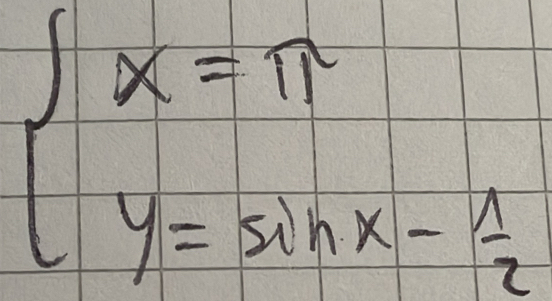 x = π
y = sin x - 1/2